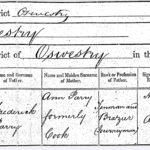 rict Oswestry
estry
ict of Oswestry in the
me and Surname of Father.
Name and Maiden Surname of Mother.
Rank or Profession of Father.
rederick
arry
Ann Parry
formerly
Cook
and
Brazier
Journeyman